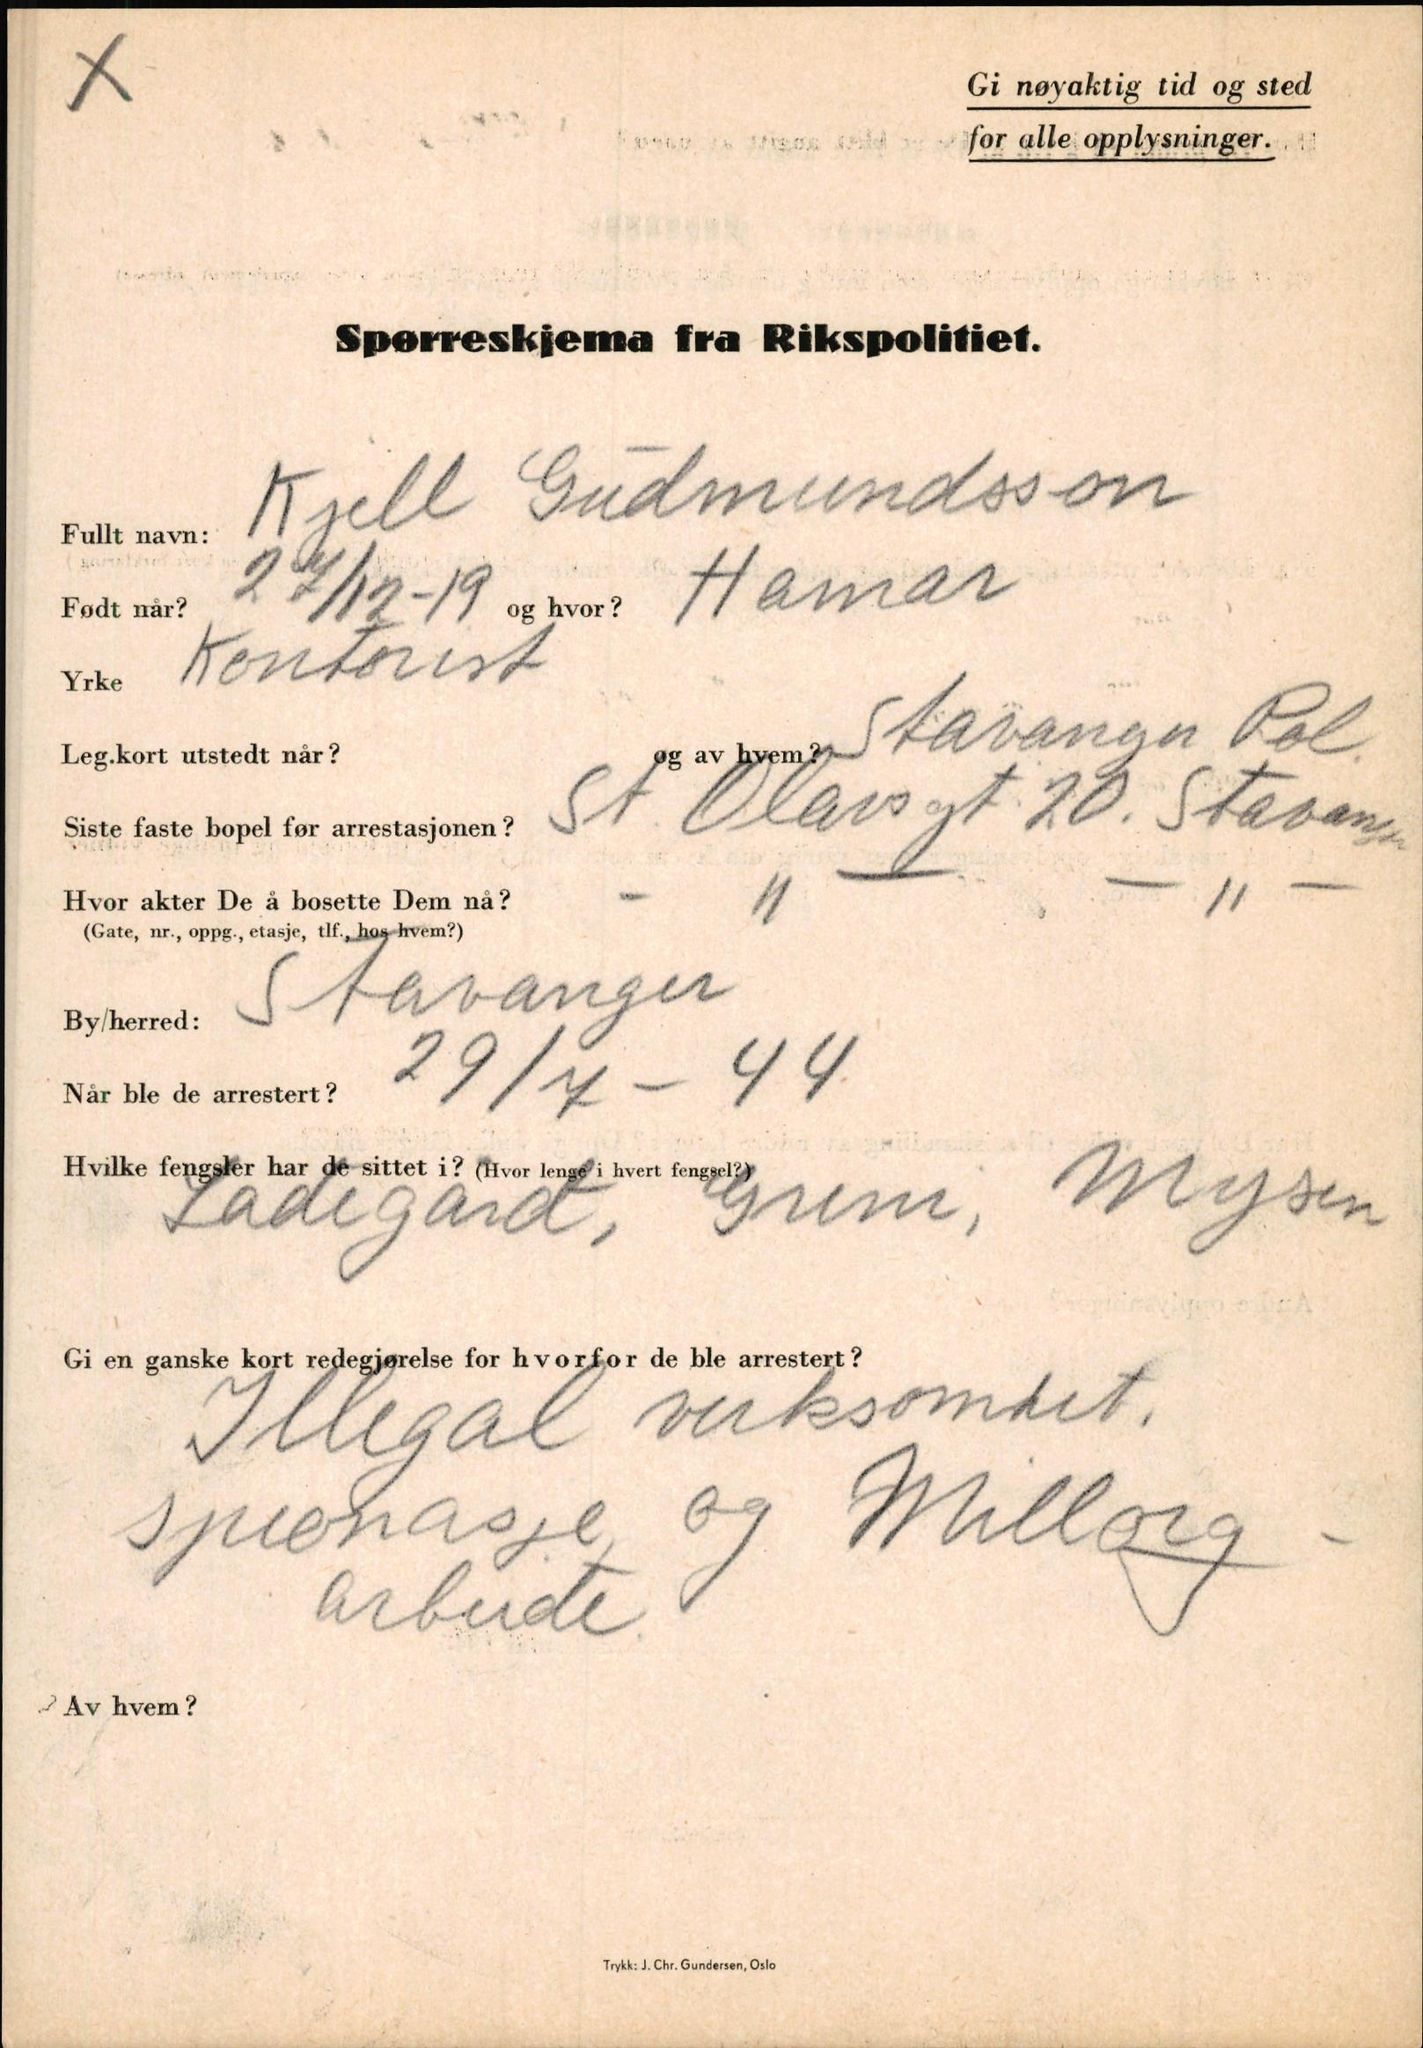 X
Gi nøyaktig tid og sted
for alle opplysninger.
Spørreskjema fra Rikspolitiet.
Fullt navn: Kjell Gudmundsson
Født når? 27/12-19 og hvor? Hamar
Yrke Kontorist
Leg.kort utstedt når? og av hvem? Stavanger Pol.
Siste faste bopel før arrestasjonen? St. Olavsgt. 20. Stavanger
Hvor akter De å bosette Dem nå? - " - - " -
(Gate, nr., oppg., etasje, tlf., hos hvem?)
By/herred: Stavanger
Når ble de arrestert? 29/7 - 44
Hvilke fengsler har de sittet i? (Hvor lenge i hvert fengsel?)
Ladegård, Grini, Mysen
Gi en ganske kort redegjørelse for hvorfor de ble arrestert?
Illegal virksomhet.
spionasje og Millorg -
arbeide.
Av hvem?
Trykk: J. Chr. Gundersen, Oslo